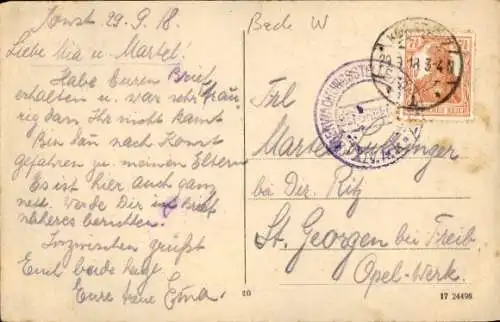 Konst 29.9.18.
Liebe Mia u. Martel!
Habe Euren Brief
erhalten u. war sehr trau
rig dass Ihr nicht kamt
Bin dan nach Konst
gefahren zu meinen Eltern
Es ist hier auch ganz
nett. Werde Dir im Brief
näheres berichten.
Inzwischen grüsst
Euch beide
Eure treue
Beck W
29.9.18 3-4 N
7½
Frl
bei Dir. Ritz
St. Georgen bei Freib.
Opel-Werk.
20
17 24498